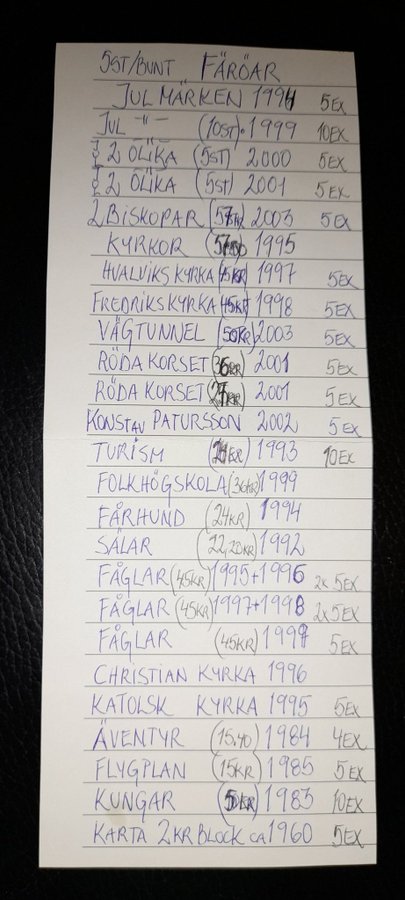 5ST/BUNT FÄRÖAR
JUL MÄRKEN 1994 5EX
JUL -"- (10ST) 1999 10EX
2 OLIKA (5ST) 2000 5EX
2 OLIKA (5ST) 2001 5EX
2 BISKOPAR 2003 5EX
KYRKOR 1995
HVALVIKS KYRKA (45KR) 1997 5EX
FREDRIKS KYRKA (45KR) 1998 5EX
VÄGTUNNEL (50KR) 2003 5EX
RÖDA KORSET (36KR) 2001 5EX
RÖDA KORSET 2001 5EX
KONST AV PATURSSON 2002 5EX
TURISM 1993 10EX
FOLKHÖGSKOLA (36KR) 1999
FÅRHUND (24KR) 1994
SÄLAR (22,20KR) 1992
FÅGLAR (45KR) 1995+1996 2x5EX
FÅGLAR (45KR) 1997+1998 2x5EX
FÅGLAR (45KR) 5EX
CHRISTIAN KYRKA 1996
KATOLSK KYRKA 1995 5EX
ÄVENTYR (15.40) 1984 4EX
FLYGPLAN (15KR) 1985 5EX
KUNGAR 1983 10EX
KARTA 2KR BLOCK CA 1960 5EX